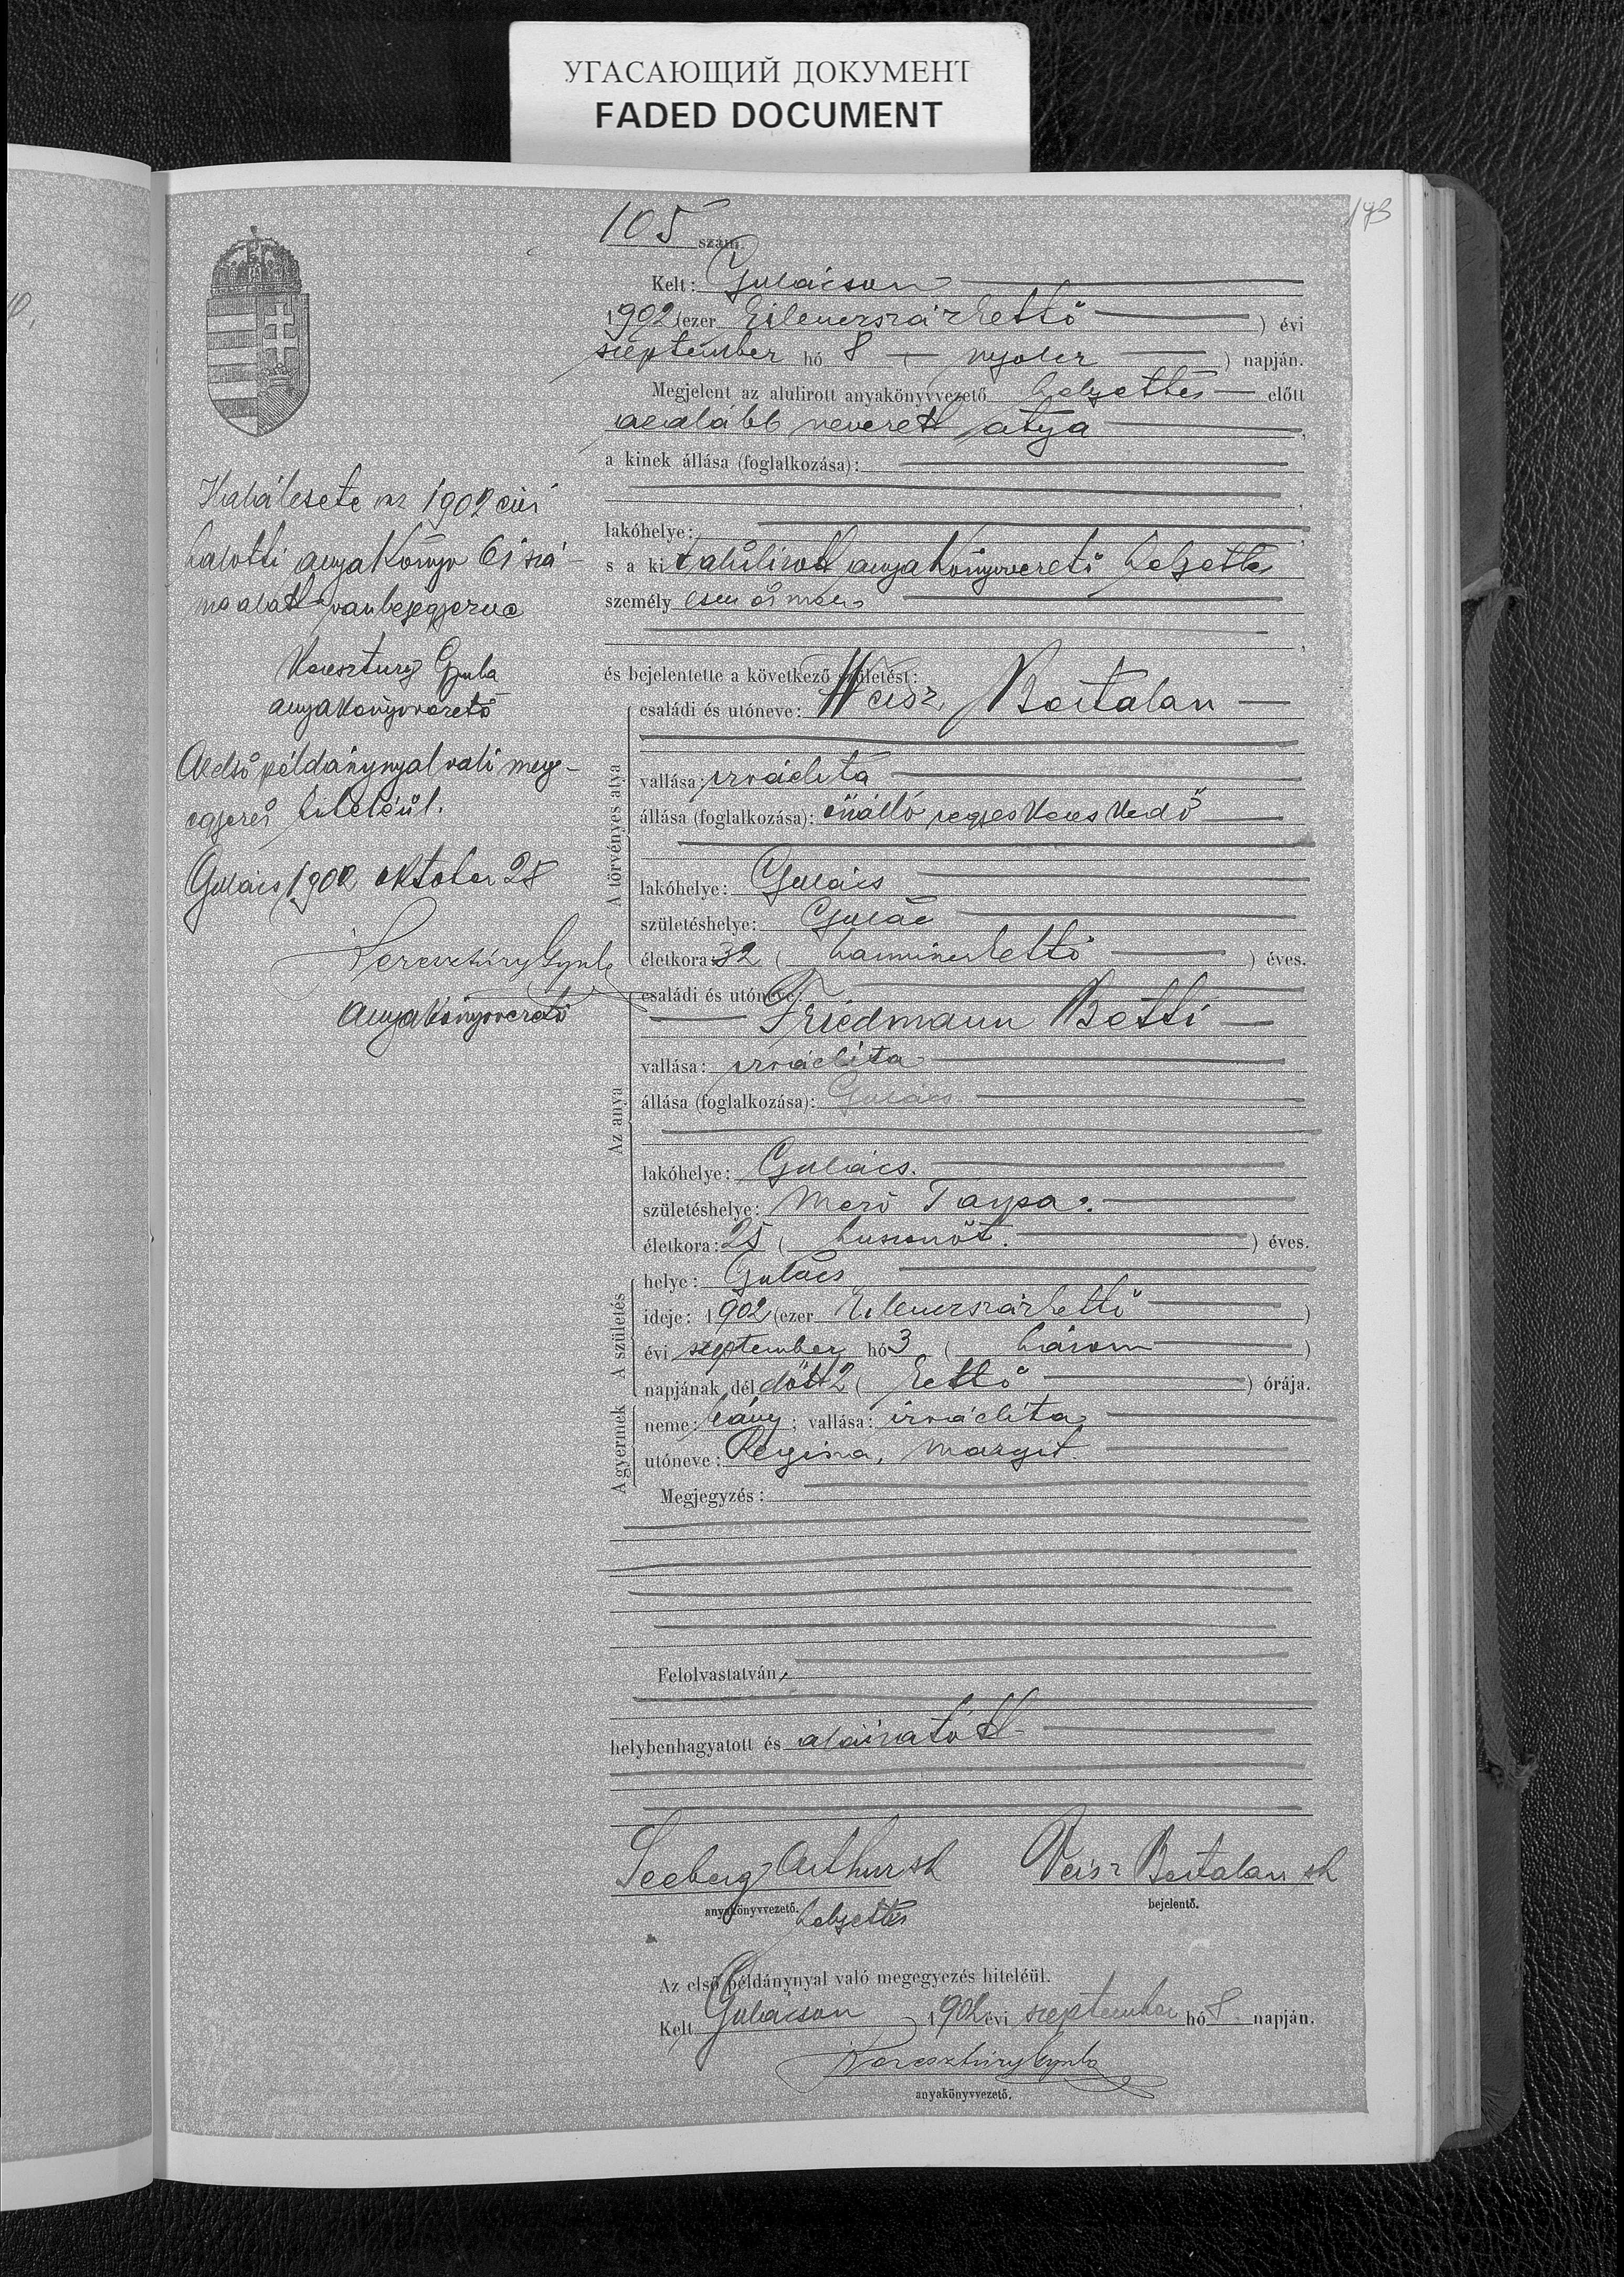 УГАСАЮЩИЙ ДОКУМЕНТ
FADED DOCUMENT
173
105 szám.
Kelt: Gulácson
1902 (ezer kilenczszázkettő) évi
szeptember hó 8 (nyolcz) napján.
Megjelent az alulirott anyakönyvvezető helyettes előtt
az alább nevezett atya,
a kinek állása (foglalkozása):
lakóhelye:
s a kit alulirott anyakönyvvezető helyettes
személyesen ösmer
és bejelentette a következő születést:
A törvényes atya
családi és utóneve: Weisz Bertalan
vallása: izraelita
állása (foglalkozása): önálló vegyeskereskedő
lakóhelye: Gulács
születéshelye: Gulác
életkora: 32 (harminczkettő) éves.
Az anya
családi és utóneve:
Friedmann Betti
vallása: izraelita
állása (foglalkozása): Gulács
lakóhelye: Gulács.
születéshelye: Mező Tarpa.
életkora: 25 (huszonöt.) éves.
A születés
helye: Gulács
ideje: 1902 (ezer kilenczszázkettő)
évi szeptember hó 3 (három)
napjának délelőtt 2 (kettő) órája.
A gyermek
neme: leány; vallása: izraelita
utóneve: Regina, Margit.
Megjegyzés:
Felolvastatván,
helybenhagyatott és aláiratott
Seeberg Arthur sk
anyakönyvvezető.
helyettes
Veisz Bertalan sk
bejelentő.
Az első példánynyal való megegyezés hiteléül.
Kelt Gulácson, 1902 évi szeptember hó 8 napján.
Keresztúry Gyula
anyakönyvvezető.
Halálesete az 1902 évi
halotti anyakönyv 61 szá-
ma alatt van bejegyezve
Keresztury Gyula
anyakönyvvezető
Az első példánynyal való meg-
egyezés hiteléül.
Gulács 1902 október 28
Keresztúry Gyula
anyakönyvvezető